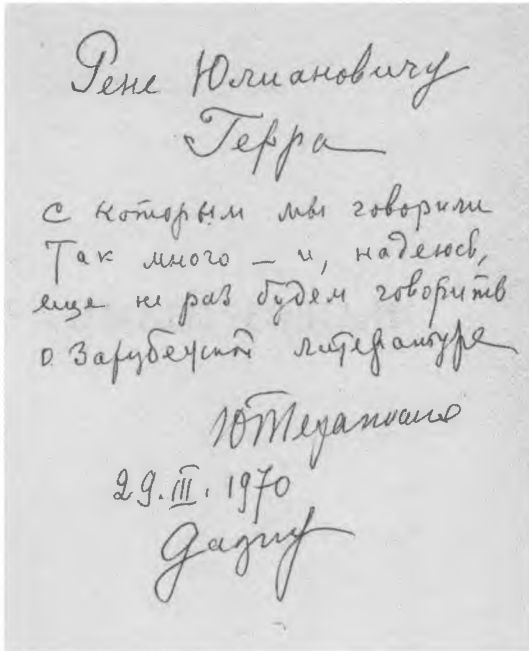 Рене Юлиановичу
Герра
с которым мы говорили
Так много — и, надеюсь,
еще не раз будем говорить
о Зарубежной литературе
ЮТерапиано
29.III.1970
Gagny